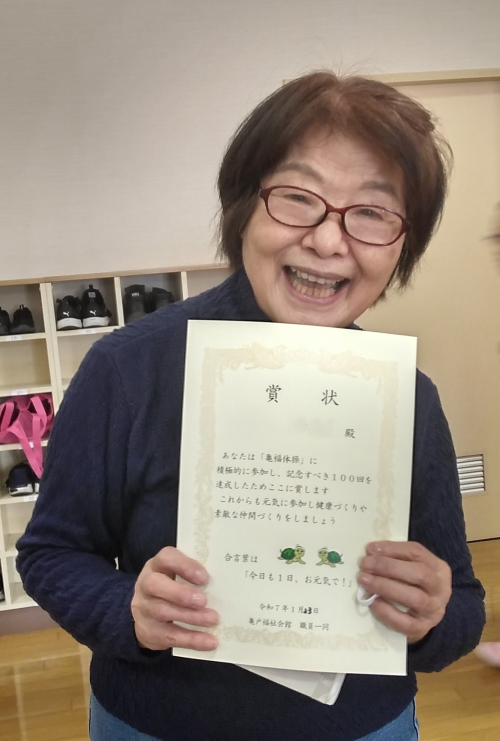 賞 状
殿
あなたは「亀福体操」に
積極的に参加し、記念すべき100回を
達成したためここに賞します
これからも元気に参加し健康づくりや
素敵な仲間づくりをしましょう
合言葉は
「今日も1日、お元気で!」
令和7年1月23日
亀戸福祉会館 職員一同